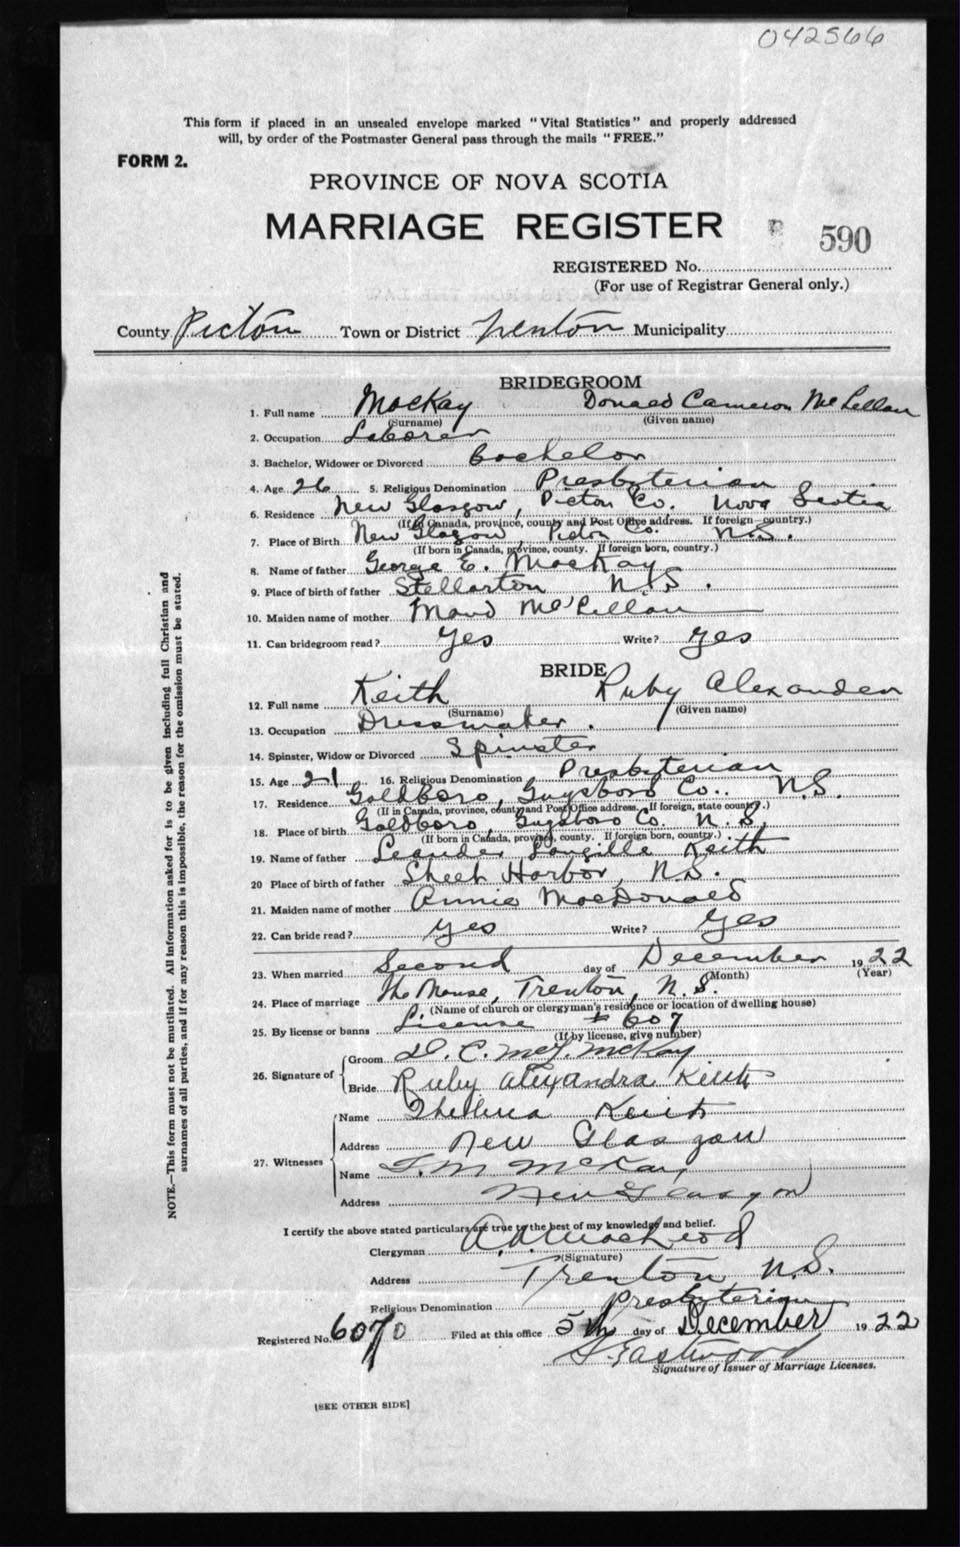 042566
This form if placed in an unsealed envelope marked "Vital Statistics" and properly addressed
will, by order of the Postmaster General pass through the mails "FREE."
FORM 2.
PROVINCE OF NOVA SCOTIA
MARRIAGE REGISTER 590
REGISTERED No.
(For use of Registrar General only.)
County Pictou Town or District Trenton Municipality
BRIDEGROOM
1. Full name MacKay Donald Cameron McLellan
(Surname) (Given name)
2. Occupation Laborer
3. Bachelor, Widower or Divorced Bachelor
4. Age 26 5. Religious Denomination Presbyterian
6. Residence New Glasgow, Pictou Co. Nova Scotia
(If in Canada, province, county and Post Office address. If foreign—country.)
7. Place of Birth New Glasgow Pictou Co. N.S.
(If born in Canada, province, county. If foreign born, country.)
8. Name of father George E. MacKay
9. Place of birth of father Stellarton N.S.
10. Maiden name of mother Maud McLellan
11. Can bridegroom read? Yes Write? Yes
BRIDE
12. Full name Keith Ruby Alexander
(Surname) (Given name)
13. Occupation Dressmaker.
14. Spinster, Widow or Divorced Spinster
15. Age 21 16. Religious Denomination Presbyterian
17. Residence Goldboro, Guysboro Co.. N.S.
(If in Canada, province, county and Post Office address. If foreign, state country.)
18. Place of birth Goldboro, Guysboro Co. N.S.
(If born in Canada, province, county. If foreign born, country.)
19. Name of father Leander Langille Keith
20 Place of birth of father Sheet Harbor, N.S.
21. Maiden name of mother Annie MacDonald
22. Can bride read? Yes Write? Yes
23. When married Second day of December 1922
(Month) (Year)
24. Place of marriage The Manse, Trenton, N.S.
(Name of church or clergyman's residence or location of dwelling house)
25. By license or banns License # 607
(If by license, give number)
26. Signature of Groom D. C. McL. McKay
Bride Ruby Alexandra Keith
27. Witnesses Name Thelma Keith
Address New Glasgow
Name McKay
Address New Glasgow
I certify the above stated particulars are true to the best of my knowledge and belief.
Clergyman MacLeod
(Signature)
Address Trenton N.S.
Religious Denomination Presbyterian
Registered No. 6070 Filed at this office 5th day of December 1922
Eastwood
Signature of Issuer of Marriage Licenses.
[SEE OTHER SIDE]
NOTE.—This form must not be mutilated. All information asked for is to be given including full Christian and
surnames of all parties, and if for any reason this is impossible, the reason for the omission must be stated.